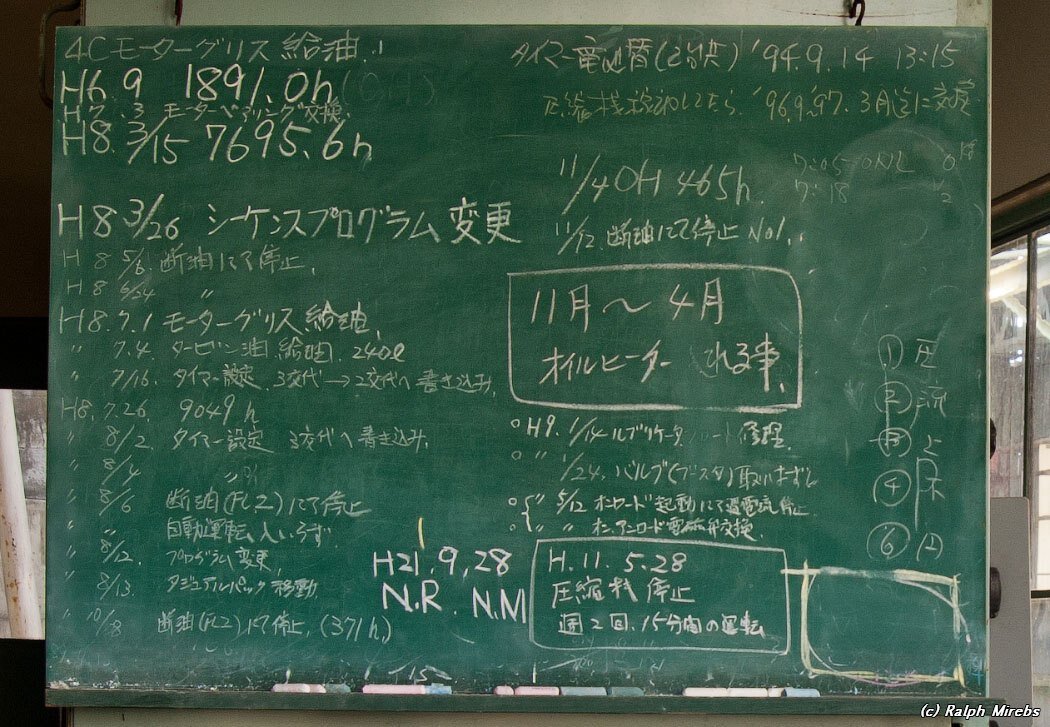 4Cモーターグリス給油.
H6.9 1891.0h
H.7.3 モーターベアリング交換.
H8.3/15 7695.6h
H8 3/26 シーケンスプログラム変更
H8 5/6. 断油にて停止.
H8 5/24 〃
H8.7.1 モーターグリス給油.
〃 7.4. タービン油給油. 240ℓ
〃 7/16. タイマー設定 3交代→2交代へ書き込み.
H8.7.26. 9049h
〃 8/2. タイマー設定 3交代へ書き込み.
〃 8/4
〃 8/6 断油(FLZ)にて停止
〃 〃 自動運転入いらず
〃 8/12. プログラム変更.
〃 8/13. 移動
〃 10/8 断油(FLZ)にて停止. (371h.)
タイマー電池替(2台共) '94.9.14 13:15
'96.9 '97.3月迄に
11/4 OH 465h.
11/12 断油にて停止 No1.
7:05
7:18
11月～4月
オイルヒーター 入れる事.
。H9. 1/14 ルブリケータ 修理.
。〃 1/24. バルブ(ブースタ)取りはずし
。〃 5/12 オンロード起動にて過電流停止
。〃 〃 オン.アンロード電磁弁交換.
H21.9.28
N.R. N.M
H.11.5.28
圧縮機停止
週2回.15分間の運転
① 圧
②
③
④
⑥
(c) Ralph Mirebs